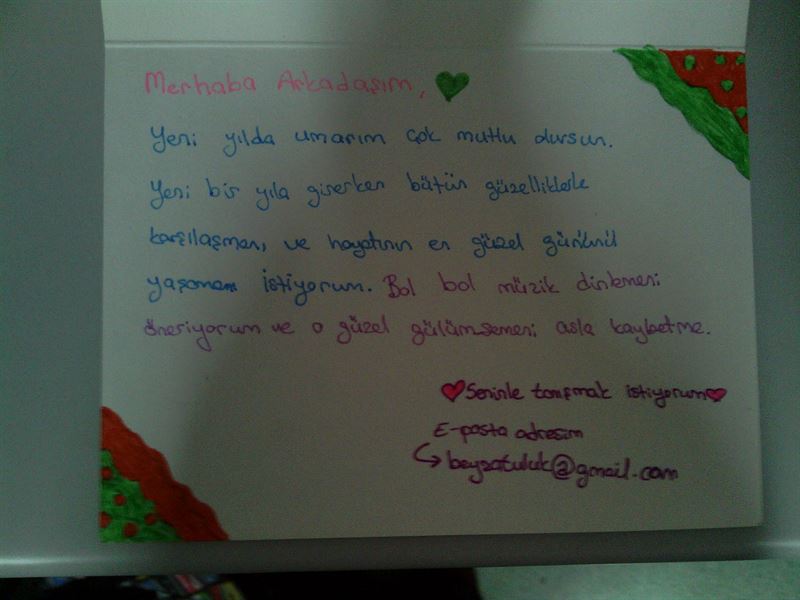 Merhaba Arkadaşım,
Yeni yılda umarım çok mutlu olursun.
Yeni bir yıla girerken bütün güzelliklerle
karşılaşmanı, ve hayatının en güzel gününü
yaşamanı istiyorum. Bol bol müzik dinlemeni
öneriyorum ve o güzel gülümsemeni asla kaybetme.
Seninle tanışmak istiyorum
E-posta adresim
beyzatuluk@gmail.com